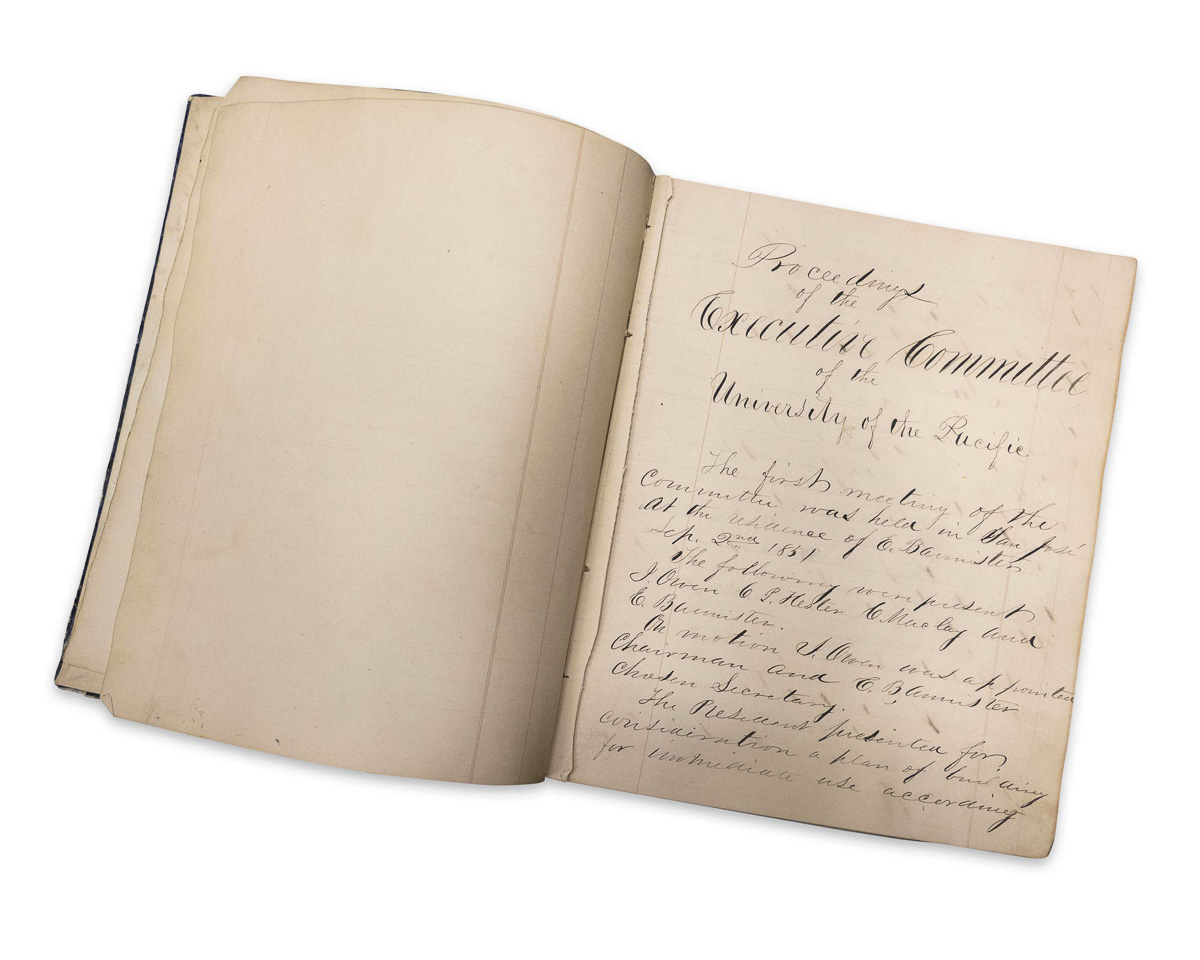 Proceedings
of the
Executive Committee
of the
University of the Pacific
The first meeting of the
Committee was held in San José
at the residence of E. Bannister
Sep. 2nd 1851
The following were present
I. Owen C. P. Hester C. Maclay and
E. Bannister.
On motion I. Owen was appointed
Chairman and E. Bannister
chosen Secretary.
The President presented for
consideration a plan of building
for immediate use according